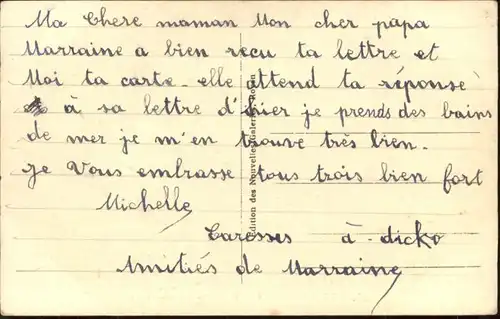 Ma Chere maman Mon cher papa
Marraine a bien reçu ta lettre et
Moi ta carte - elle attend ta réponse
à sa lettre d'hier je prends des bains
de mer je m'en trouve très bien.
Je Vous embrasse tous trois bien fort
Michelle
Caresses à - dicko
Amitiés de Marraine
Edition des Nouvelles Galeries,